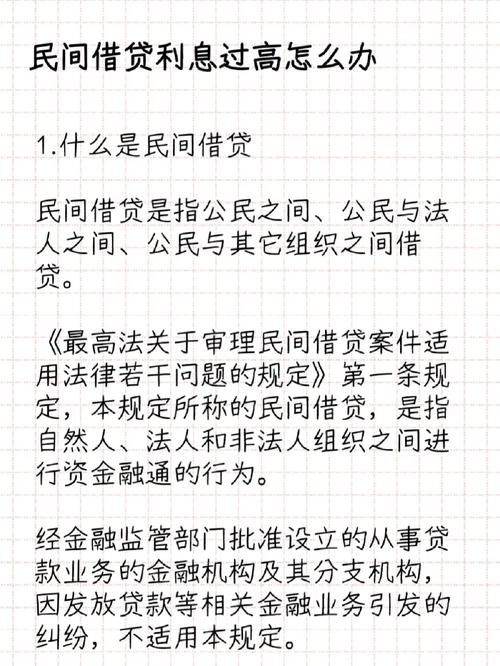 民间借贷利息过高怎么办
1.什么是民间借贷
民间借贷是指公民之间、公民与法
人之间、公民与其它组织之间借
贷。
《最高法关于审理民间借贷案件适
用法律若干问题的规定》第一条规
定，本规定所称的民间借贷，是指
自然人、法人和非法人组织之间进
行资金融通的行为。
经金融监管部门批准设立的从事贷
款业务的金融机构及其分支机构，
因发放贷款等相关金融业务引发的
纠纷，不适用本规定。